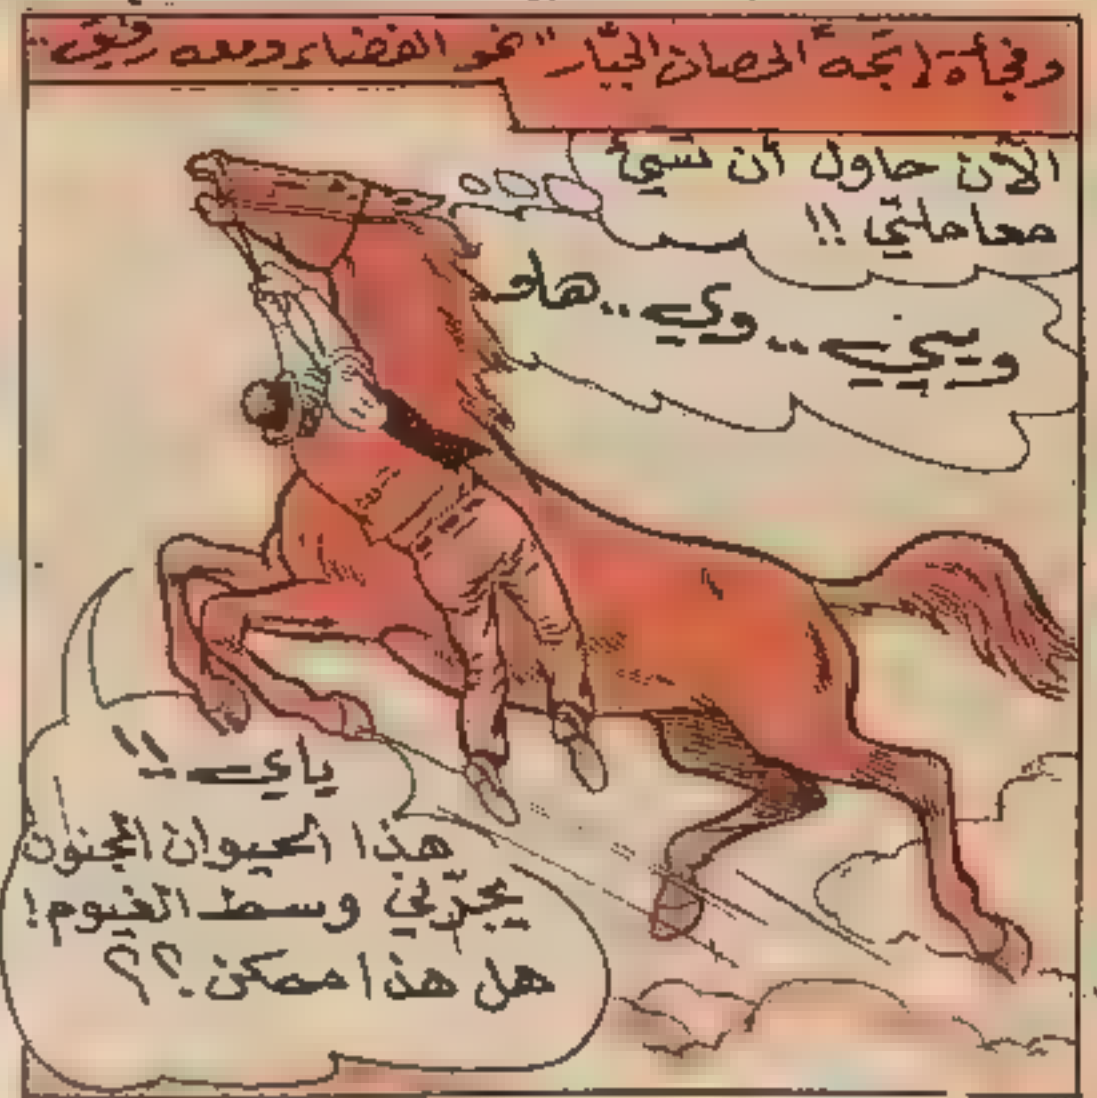 وفجأة إتجه "الحصان الجبّار" نحو الفضاء ومعه رفيق..
الآن حاول أن تسيء
معاملتي !!
وييني..وي..هاو
ياي !!
هذا الحيوان المجنون
يجرّني وسط الغيوم!
هل هذا ممكن.؟؟